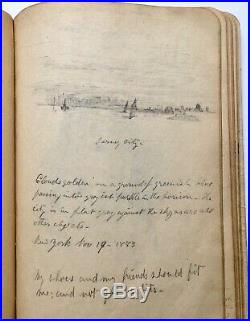 Jersey City -
Clouds golden on a ground of greenish blue
passing into gray purple in the horizon - the
city is in flat gray against the sky as are also
other objects -
New York Nov 19 - 1883
My shoes and my friends should fit
me; and not fits.